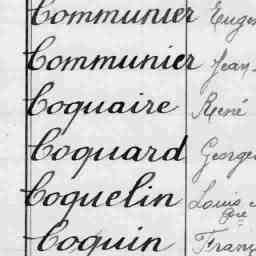 Communier Eugen
Communier Jean-
Coquaire René
Coquard Georges
Coquelin Louis
Coquin Franç